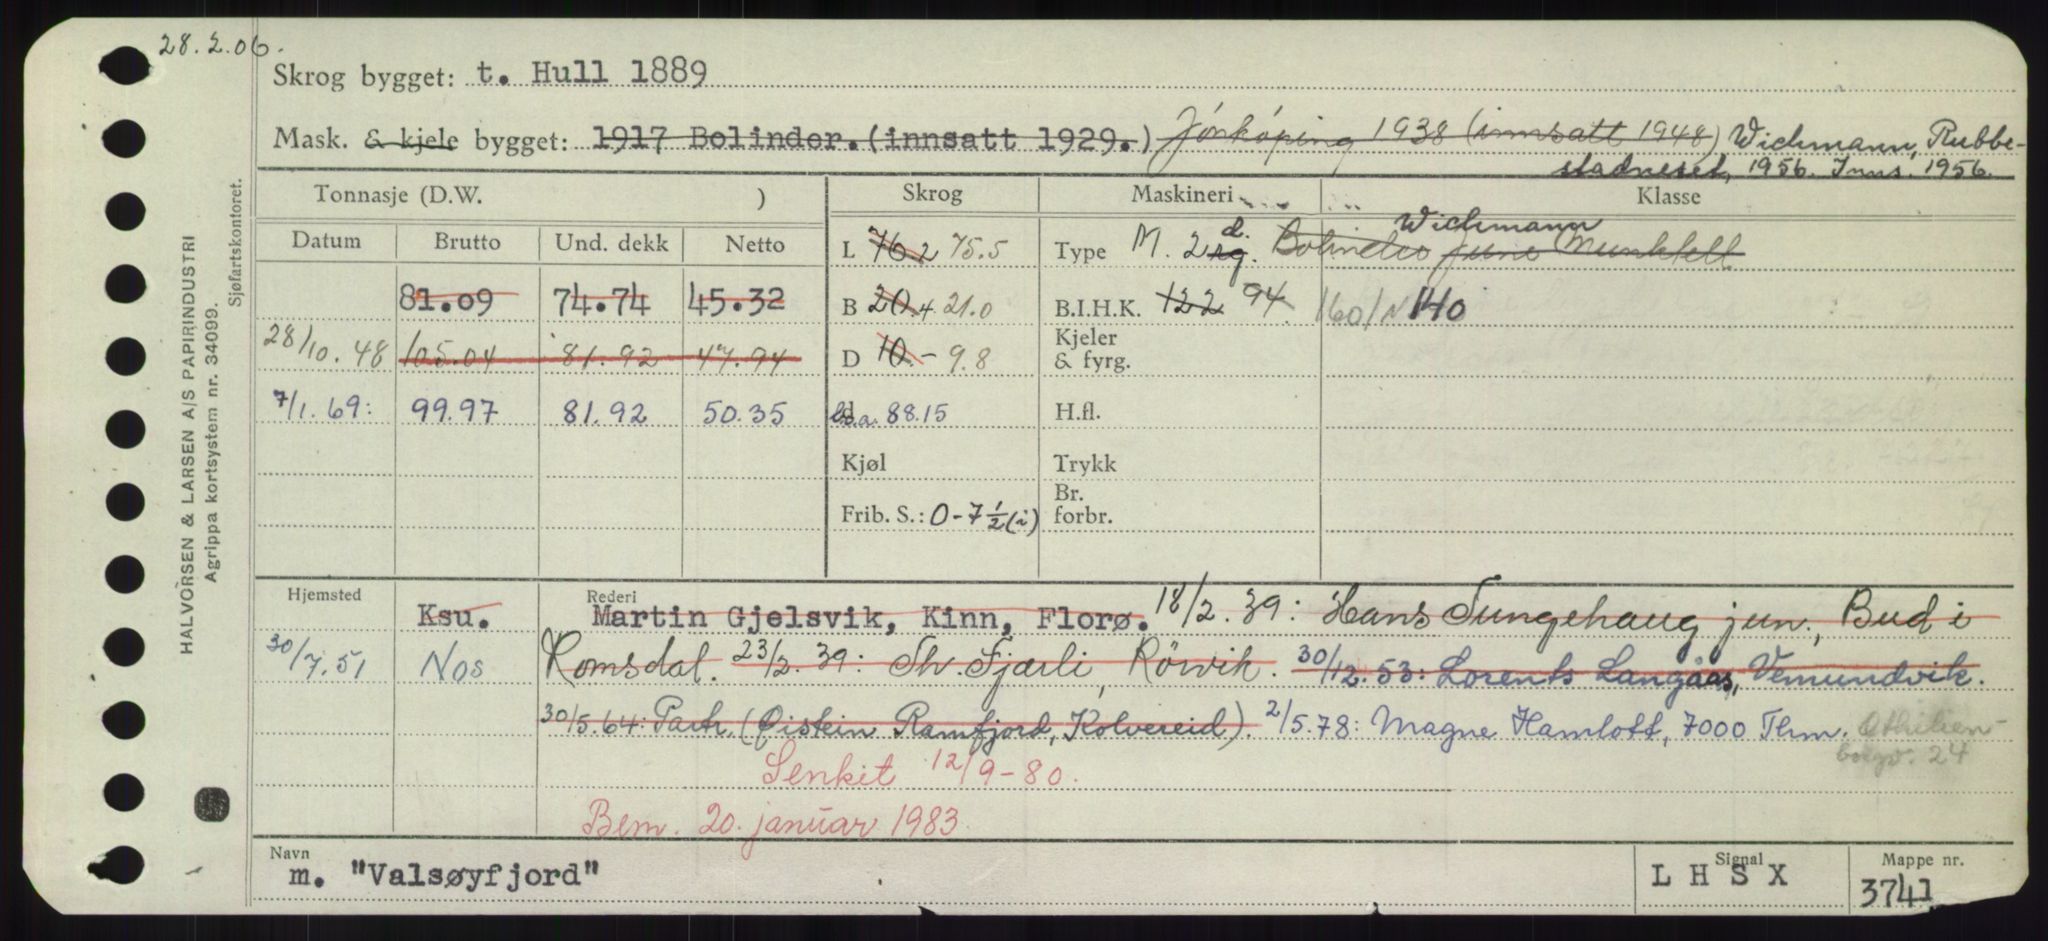 28.2.06.
Skrog bygget: t. Hull 1889
Mask. & kjele bygget: 1917 Bolinder. (innsatt 1929.) Jönköping 1938 (innsatt 1948) Wichmann, Rubbe-
stadneset, 1956. Inns. 1956.
Tonnasje (D.W. ) Skrog Maskineri Klasse
Datum Brutto Und. dekk Netto L 76.2 75.5 Type M. 2 rg. d. Bolinder June Munktell Wichmann
81.09 74.74 45.32 B 20.4 21.0 B.I.H.K. 122 94 160/N 140
28/10.48 105.04 81.92 47.94 D 10.- 9.8 Kjeler & fyrg.
7/1.69: 99.97 81.92 50.35 d l.o.a. 88.15 H.fl.
Kjøl Trykk
Frib. S.: 0-7½(i) Br. forbr.
Hjemsted Rederi
Ksu. Martin Gjelsvik, Kinn, Florø. 18/2.39: Hans Tungehaug jun., Bud i
30/7.51 Nos Romsdal. 23/2.39: Th. Fjærli, Rörvik. 30/12.53: Lorents Langåas, Vemundvik.
30/5.64: Partr. (Øistein Ramfjord, Kolvereid). 2/5.78: Magne Hamlott, 7000 Thm. Othilien-
borgv. 24
Senket 12/9-80.
Bem. 20. januar 1983
Navn Signal Mappe nr.
m. "Valsøyfjord" L H S X 3741
HALVORSEN & LARSEN A/S PAPIRINDUSTRI
Agrippa kortsystem nr. 34099.
Sjøfartskontoret.